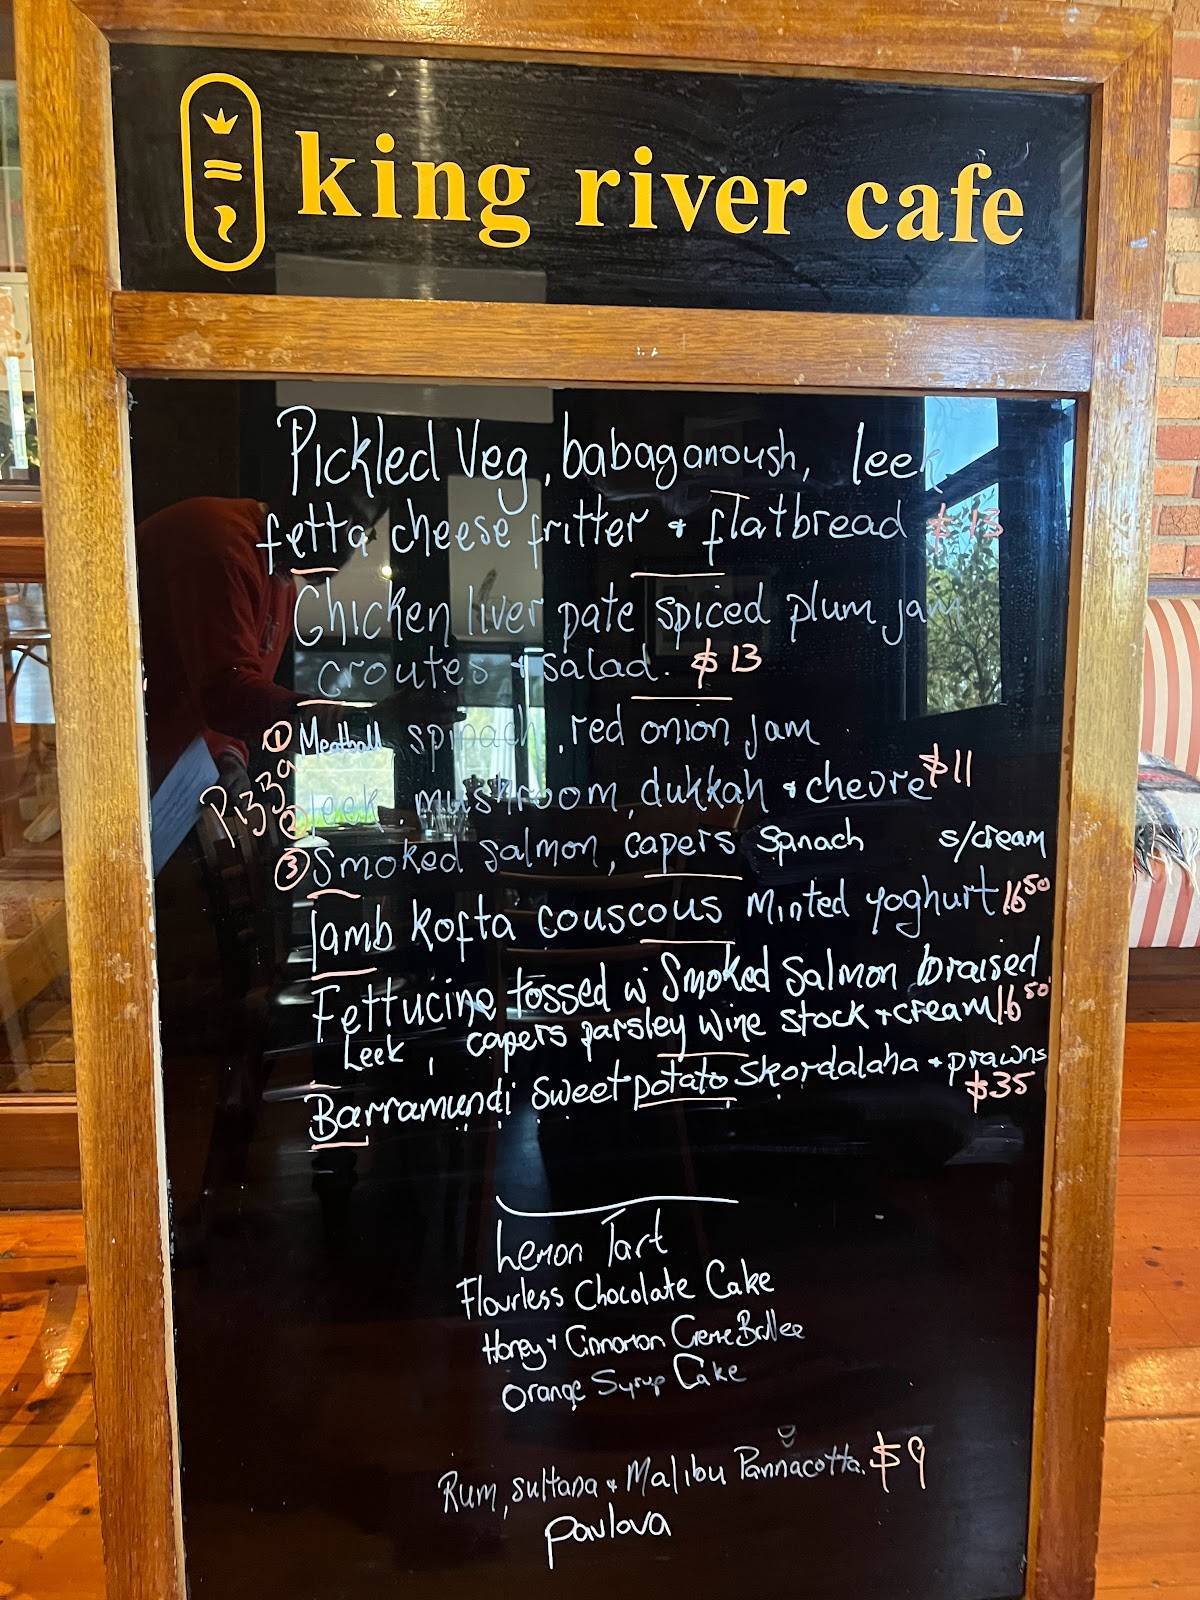 king river cafe
Pickled Veg, babaganoush, leek
fetta cheese fritter + flatbread $13
Chicken liver pate spiced plum jam
croutes + salad. $13
Pizza
① Meatball spinach, red onion jam
② leek, mushroom, dukkah + chevre $11
③ Smoked Salmon, capers spinach s/cream
lamb kofta couscous minted yoghurt 16 50
Fettucine tossed w Smoked Salmon braised
Leek, capers parsley wine stock + cream 16 50
Barramundi sweet potato Skordalaha + prawns
$35
Lemon Tart
Flourless Chocolate Cake
Honey + Cinnamon Creme Brulee
Orange Syrup Cake
Rum, sultana + Malibu Pannacotta. $9
pavlova